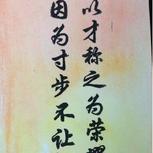 以才称之为荣耀
因为寸步不让